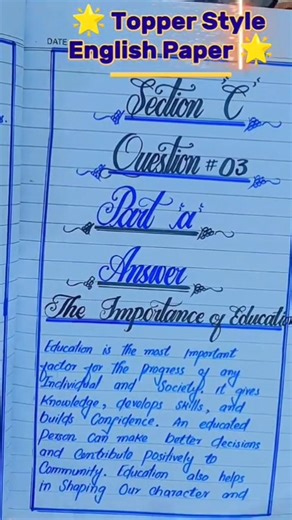 🌟 Topper Style
English Paper 🌟
DATE
Section "C"
Question # 03
Part "a"
Answer
The Importance of Educatio
Education is the most important
factor for the progress of any
Individual and Society. It gives
Knowledge, develops skills, and
builds Confidence. An educated
Person Can make better decisions
and Contribute Positively to
Community. Education also helps
in Shaping Our character and